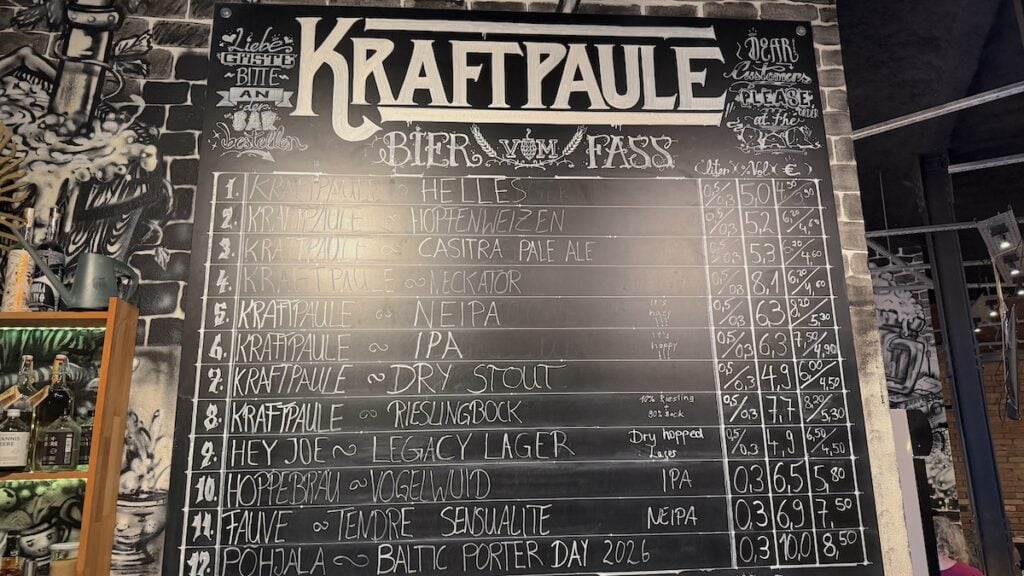 Liebe
GÄSTE
BITTE
AN
der
BAR
bestellen
KRAFTPAULE
DEAR
Customers
PLEASE
ORDER
at the
BAR
BIER VOM FASS
(Liter × %Vol × €)
1. KRAFTPAULE ~ HELLES 0,5/0,3 5,0
2. KRAFTPAULE ~ HOPFENWEIZEN 0,5/0,3 5,2
3. KRAFTPAULE ~ CASITRA PALE ALE 0,5/0,3 5,3 /4,60
4. KRAFTPAULE ~ NECKATOR 0,5/0,3 8,1
5. KRAFTPAULE ~ NEIPA it's hazy !!! 0,5/0,3 6,3 8,20/5,30
6. KRAFTPAULE ~ IPA it's hoppy !!! 0,5/0,3 6,3 7,50/4,90
7. KRAFTPAULE ~ DRY STOUT 0,5/0,3 4,9 6,90/4,50
8. KRAFTPAULE ~ RIESLINGBOCK Riesling + Bock 0,5/0,3 7,7 8,20/5,30
9. HEY JOE ~ LEGACY LAGER Dry hopped Lager 0,5/0,3 4,9 6,50/4,50
10. HOPPEBRÄU ~ VOGELWUID IPA 0,3 6,5 5,80
11. FAUVE ~ TENDRE SENSUALITE NEIPA 0,3 6,9 7,50
12. POHJALA ~ BALTIC PORTER DAY 2026 0,3 10,0 8,50